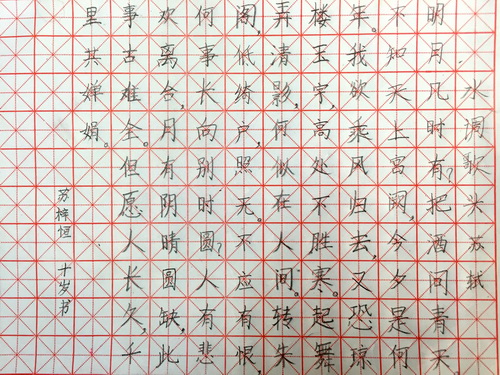 水调歌头 苏轼
明月凡时有？把酒问青天。
不知天上宫阙，今夕是何
年。我欲乘风归去，又恐琼
楼玉宇，高处不胜寒。起舞
弄清影，何似在人间。转朱
阁，低绮户，照无。不应有恨，
何事长向别时圆？人有悲
欢离合，月有阴晴圆缺，此
事古难全。但愿人长久，千
里共婵娟。
苏梓恒 十岁书